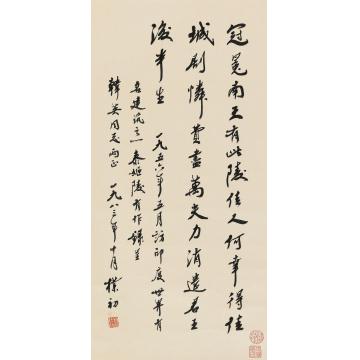 冠冕南天有此陵佳人何幸得佳
城剧憐費盡萬夫力消遣君王
後半生 一九五六年五月訪印度世界有
名建筑之一泰姬陵有作録呈
韓英同志两正 一九八三年十月 樸初